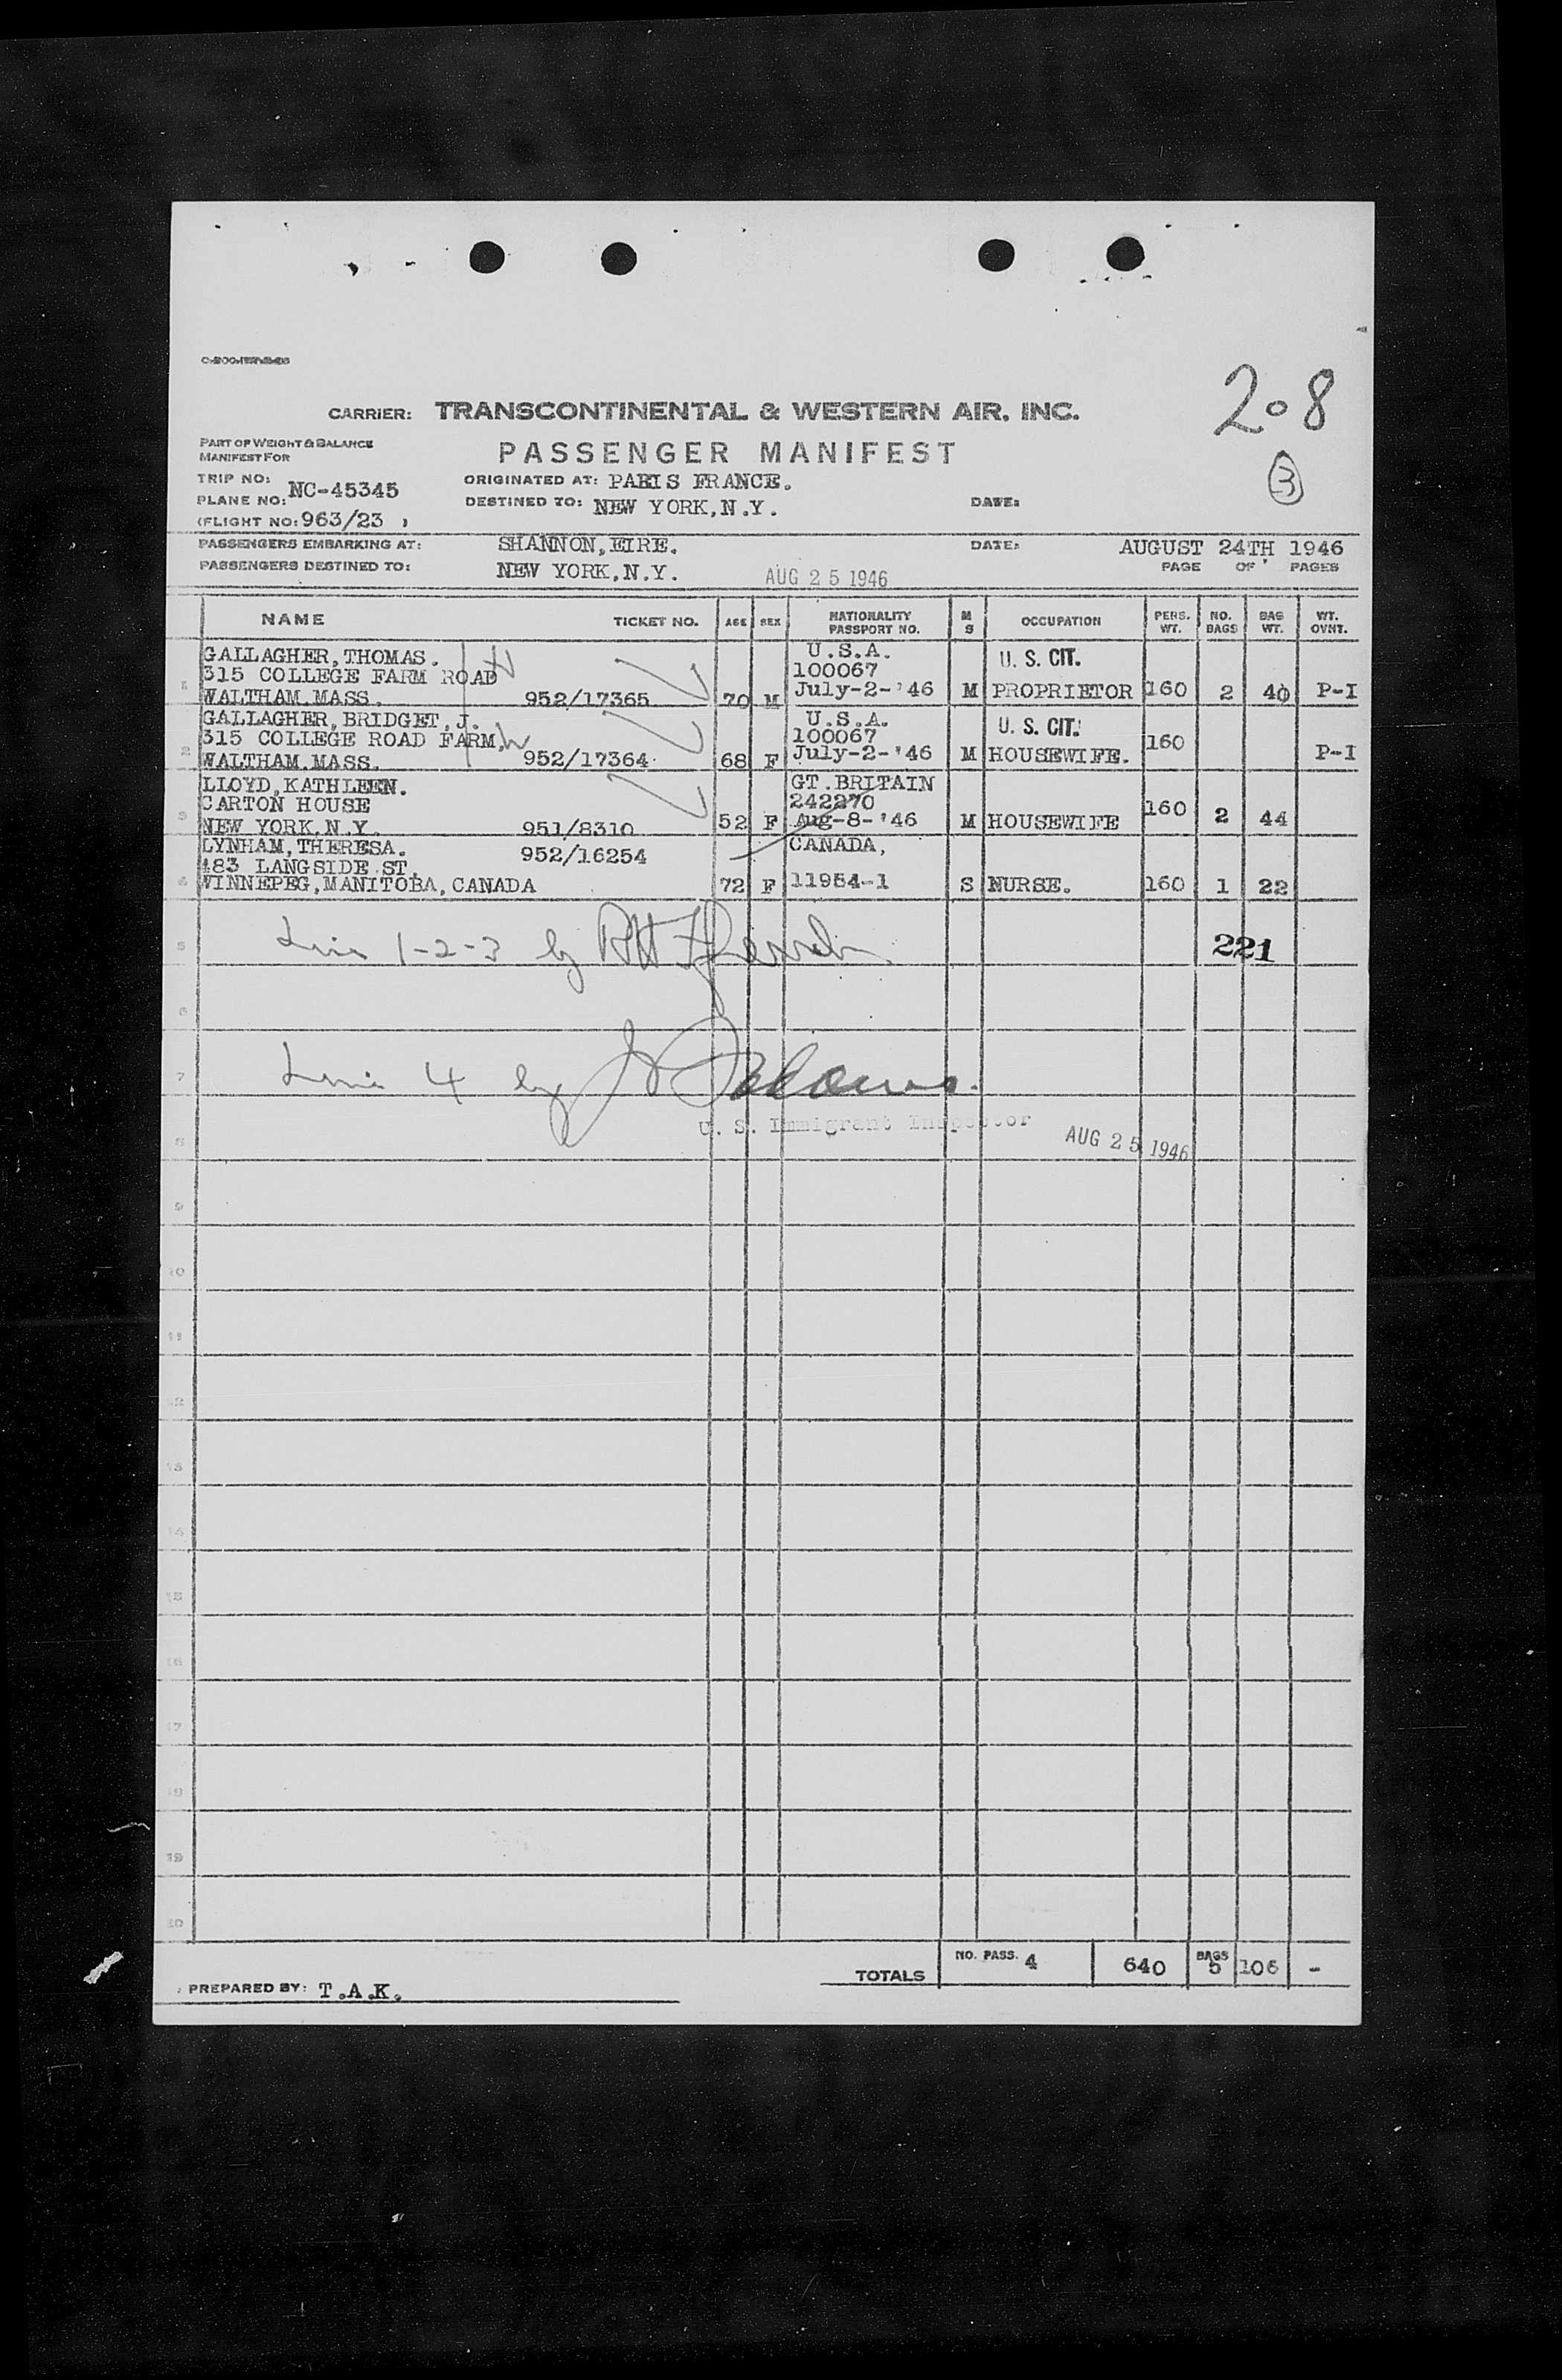 208
CARRIER: TRANSCONTINENTAL & WESTERN AIR, INC.
PART OF WEIGHT & BALANCE
MANIFEST FOR
PASSENGER MANIFEST
3
TRIP NO:
PLANE NO: NC-45345
(FLIGHT NO: 963/23 )
ORIGINATED AT: PARIS FRANCE.
DESTINED TO: NEW YORK,N.Y.
DATE:
PASSENGERS EMBARKING AT: SHANNON,EIRE. DATE: AUGUST 24TH 1946
PASSENGERS DESTINED TO: NEW YORK,N.Y. AUG 25 1946 PAGE OF PAGES
NAME TICKET NO. AGE SEX NATIONALITY PASSPORT NO. M S OCCUPATION PERS. WT. NO. BAGS BAG WT. WT. OVNT.
GALLAGHER,THOMAS. U.S.A. U. S. CIT.
315 COLLEGE FARM ROAD 100067
1 WALTHAM.MASS. 952/17365 70 M July-2-'46 M PROPRIETOR 160 2 40 P-I
GALLAGHER,BRIDGET,J. U.S.A. U. S. CIT.
315 COLLEGE ROAD FARM, 100067 160
2 WALTHAM.MASS. 952/17364 68 F July-2-'46 M HOUSEWIFE. P-I
LLOYD,KATHLEEN. GT.BRITAIN
CARTON HOUSE 242270 160
3 NEW YORK.N.Y. 951/8310 52 F Aug-8-'46 M HOUSEWIFE 2 44
LYNHAM,THERESA. 952/16254 CANADA,
483 LANGSIDE ST.
4 WINNEPEG,MANITOBA,CANADA 72 F 11954-1 S NURSE. 160 1 22
5 1-2-3 by 221
6
7 4 by
U. S. Immigrant Inspector
8 AUG 25 1946
9
10
11
12
13
14
15
16
17
18
19
20
TOTALS NO. PASS. 4 640 BAGS 5 106 -
PREPARED BY: T.A.K.